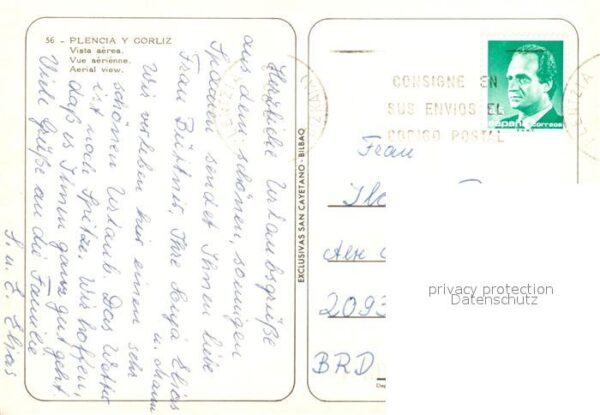 56 - PLENCIA Y GORLIZ
Vista aérea.
Vue aérienne.
Aerial view.
Herzliche Urlaubsgrüße
aus dem schönen, sonnigen
Spanien sendet Ihnen liebe
Frau Büttner, Ihre Elias
u. Mann
Wir verleben hier einen sehr
schönen Urlaub. Das Wetter
ist noch Spitze. Wir hoffen,
daß es Ihnen ganz gut geht.
Viele Grüße an die Familie
S. u. E. Elias
EXCLUSIVAS SAN CAYETANO - BILBAO
CONSIGNE EN
SUS ENVIOS EL
CODIGO POSTAL
españa correos
Frau
2093
BRD
privacy protection
Datenschutz